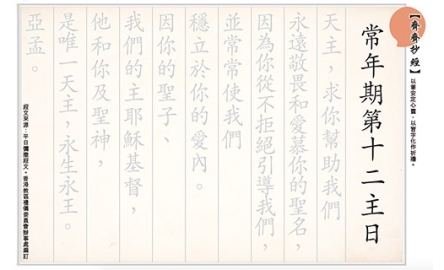 【齊齊抄經】
以筆安定心靈，以寫字化作祈禱。
常年期第十二主日
天主，求你幫助我們
永遠敬畏和愛慕你的聖名，
因為你從不拒絕引導我們，
並常常使我們
穩立於你的愛內。
因你的聖子、
我們的主耶穌基督，
他和你及聖神，
是唯一天主，永生永王。
亞孟。
經文來源：平日彌撒經文，香港教區禮儀委員會辦事處編訂